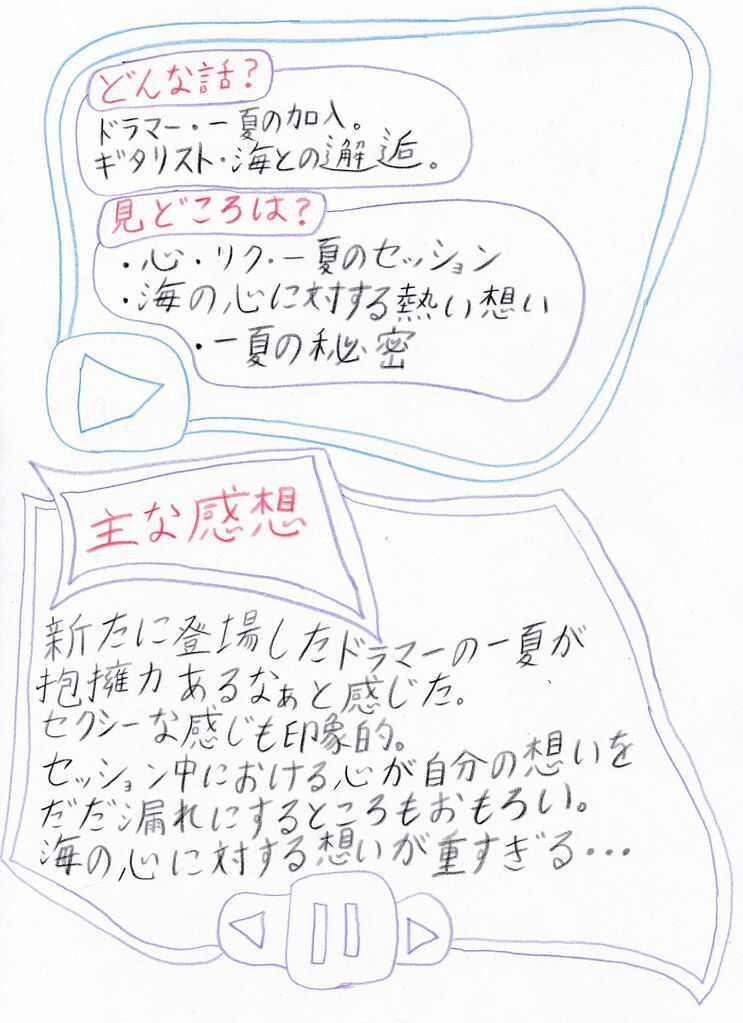 どんな話?
ドラマー・一夏の加入。
ギタリスト・海との邂逅。
見どころは?
・心・リク・一夏のセッション
・海の心に対する熱い想い
・一夏の秘密
主な感想
新たに登場したドラマーの一夏が
抱擁力あるなぁと感じた。
セクシーな感じも印象的。
セッション中における心が自分の想いを
だだ漏れにするところもおもろい。
海の心に対する想いが重すぎる・・・